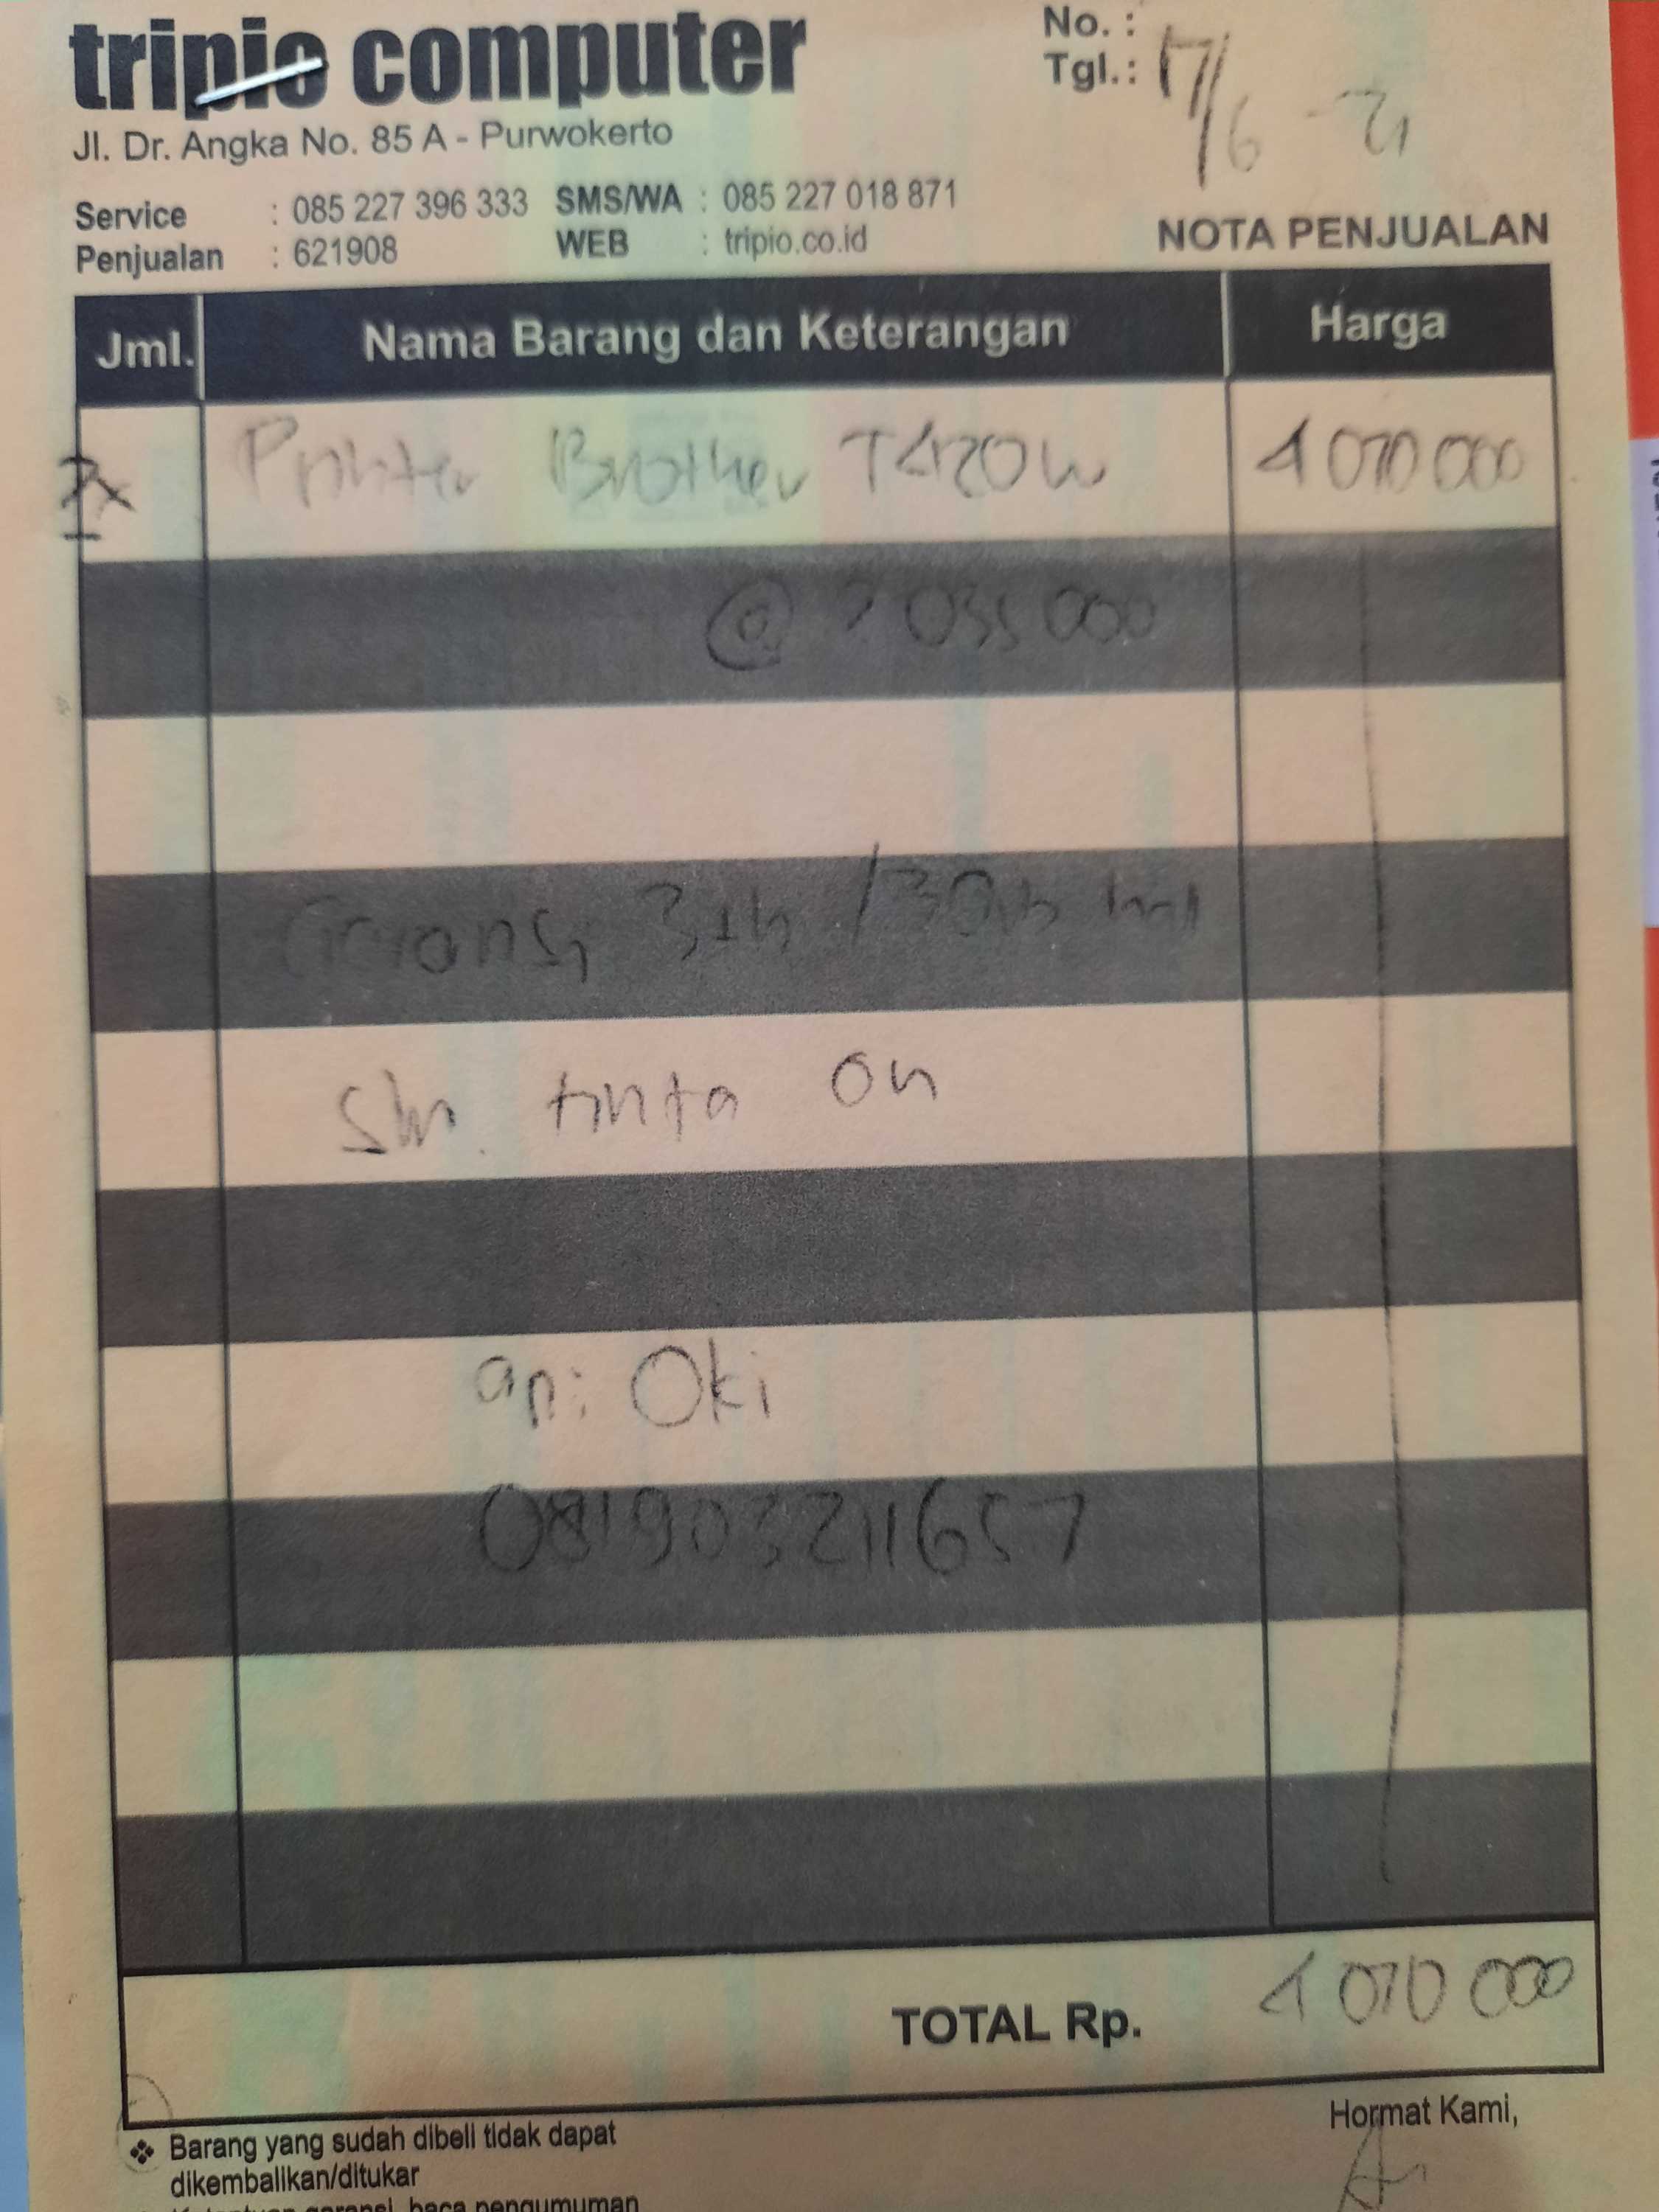 tripio computer
Jl. Dr. Angka No. 85 A - Purwokerto
No. :
Tgl. : 17/6 - 21
Service : 085 227 396 333 SMS/WA : 085 227 018 871
Penjualan : 621908 WEB : tripio.co.id
NOTA PENJUALAN
Jml. Nama Barang dan Keterangan Harga
2x Printer Brother T420W 4 070 000
@ 2 035 000
Garansi 3th / 30rb
tinta on
an: Oki
081903211657
TOTAL Rp. 4 070 000
Hormat Kami,
❖ Barang yang sudah dibeli tidak dapat
dikembalikan/ditukar
Ketentuan garansi, baca pengumuman